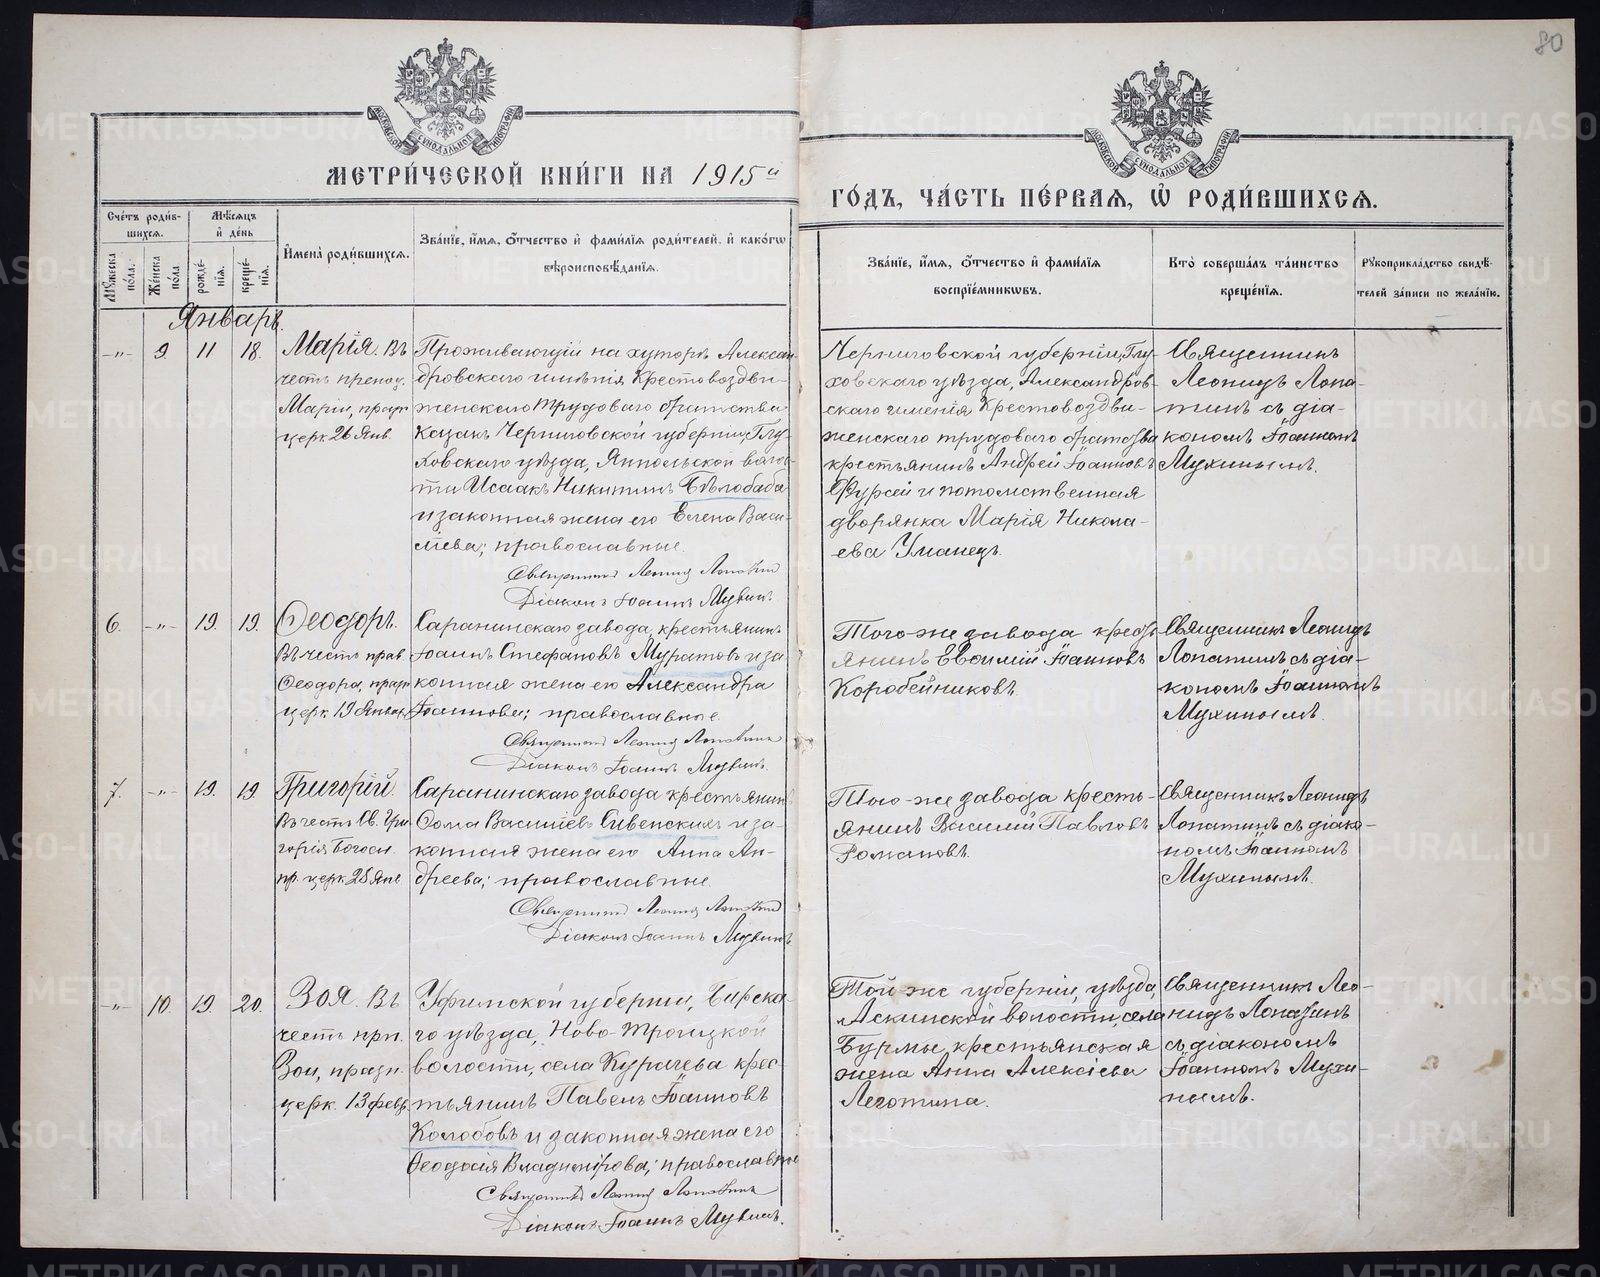 80
МОСКОВСКОЙ СѴНОДАЛЬНОЙ ТИПОГРАФІИ
МОСКОВСКОЙ СѴНОДАЛЬНОЙ ТИПОГРАФІИ
МЕТРИ́ЧЕСКОЙ КНИ́ГИ НА 1915й
ГО́ДЪ, ЧА́СТЬ ПЕ́РВАЯ, Ѡ҆ РОДИ́ВШИХСЯ.
Сче́тъ роди́в-
шихся.
Мѣ́сяцъ
и҆ де́нь
Мꙋ́жеска по́ла.
Же́нска по́ла
рожде́-нїя.
креще́-нїя.
И҆мена̀ роди́вшихся.
Зва́нїе, и҆́мя, ѻ҆́тчество и҆ фами́лїя роди́телей, и҆ како́гѡ
вѣроисповѣ́данїя.
Зва́нїе, и҆́мя, ѻ҆́тчество и҆ фами́лїя
воспрїе́мникѡвъ.
Кто̀ соверша́лъ та́инство
креще́нїя.
Рꙋкоприкла́дство свидѣ́-
телей за́писи по жела́нїю.
Январь.
-"- 9. 11 18.
Марія. Въ
честь препод.
Маріи, празн
церк 26 Янв.
Проживающій на хуторѣ Алексан-
дровскаго имѣнія Крестовоздви-
женскаго трудоваго братства
казакъ Черниговской губерніи, Глу-
ховскаго уѣзда, Ямпольской воло-
сти Исаакъ Никитинъ Бѣлобаба
и законная жена его Елена Васи-
ліева; православные.
Священникъ Леонидъ Лопатинъ
Діаконъ Іоаннъ Мухинъ.
Черниговской губерніи, Глу-
ховскаго уѣзда, Александров-
скаго имѣнія Крестовоздви-
женскаго трудоваго братства
крестьянинъ Андрей Іоанновъ
Фурсей и потомственная
дворянка Марія Никола-
ева Уманецъ.
Священникъ
Леонидъ Лопа-
тинъ съ діа-
кономъ Іоанномъ
Мухинымъ.
6. -"- 19. 19.
Ѳеодоръ.
Въ честь прав.
Ѳеодора, празн
церк. 19 Январ.
Саранинскаго завода, крестьянинъ
Іоаннъ Стефановъ Муратовъ и за-
конная жена его Александра
Іоаннова; православные.
Священникъ Леонидъ Лопатинъ
Діаконъ Іоаннъ Мухинъ.
Того-же завода кресть-
янинъ Евѳимій Іоанновъ
Коробейниковъ.
Священникъ Леонидъ
Лопатинъ съ діа-
кономъ Іоанномъ
Мухинымъ.
7. -"- 19. 19.
Григорій.
Въ честь Св. Гри-
горія Богосл.
пр. церк. 25 Янв
Саранинскаго завода крестьянинъ
Ѳома Василіевъ Сивенскихъ и за-
конная жена его Анна Ан-
дреева; православные.
Священникъ Леонидъ Лопатинъ
Діаконъ Іоаннъ Мухинъ
Того-же завода кресть-
янинъ Василій Павловъ
Романовъ.
Священникъ Леонидъ
Лопатинъ съ діако-
номъ Іоанномъ
Мухинымъ.
-"- 10. 19. 20.
Зоя. Въ
честь прп.
Зои, празн.
церк. 13 февр.
Уфимской губерніи, Бирска-
го уѣзда, Ново-Троицкой
волости, села Курачева крес-
тьянинъ Павелъ Іоанновъ
Колобовъ и законная жена его
Ѳеодосія Владимірова; православные
Священникъ Леонидъ Лопатинъ
Діаконъ Іоаннъ Мухинъ.
Той-же губерніи, уѣзда,
Аскинской волости, села
Бурмы, крестьянская
жена Анна Алексіева
Леготина.
Священникъ Лео-
нидъ Лопатинъ
съ діакономъ
Іоанномъ Мухи-
нымъ.
METRIKI.GASO-URAL.RU